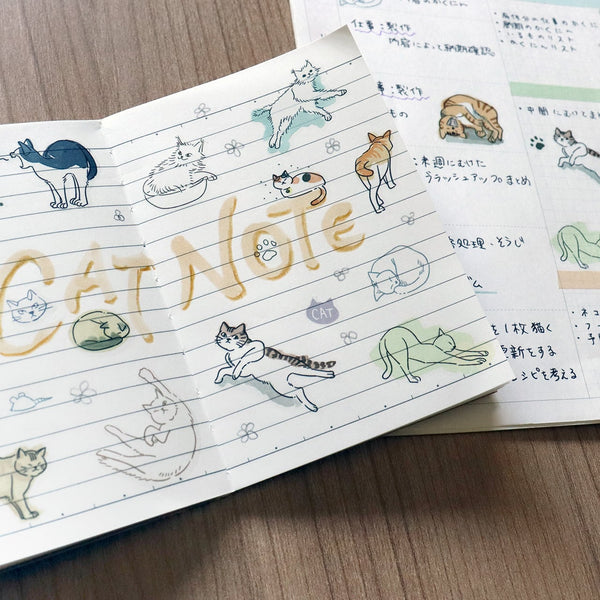 CAT NOTE
CAT
仕事:製作
内容によって納期確認。
・いるものリスト
・かくにんリスト
：製作
もの
・来週にむけた
ブラッシュアップまとめ
・中間にむけてま
処理・そうじ
を1枚描く
更新をする
レシピを考える
・ネコ